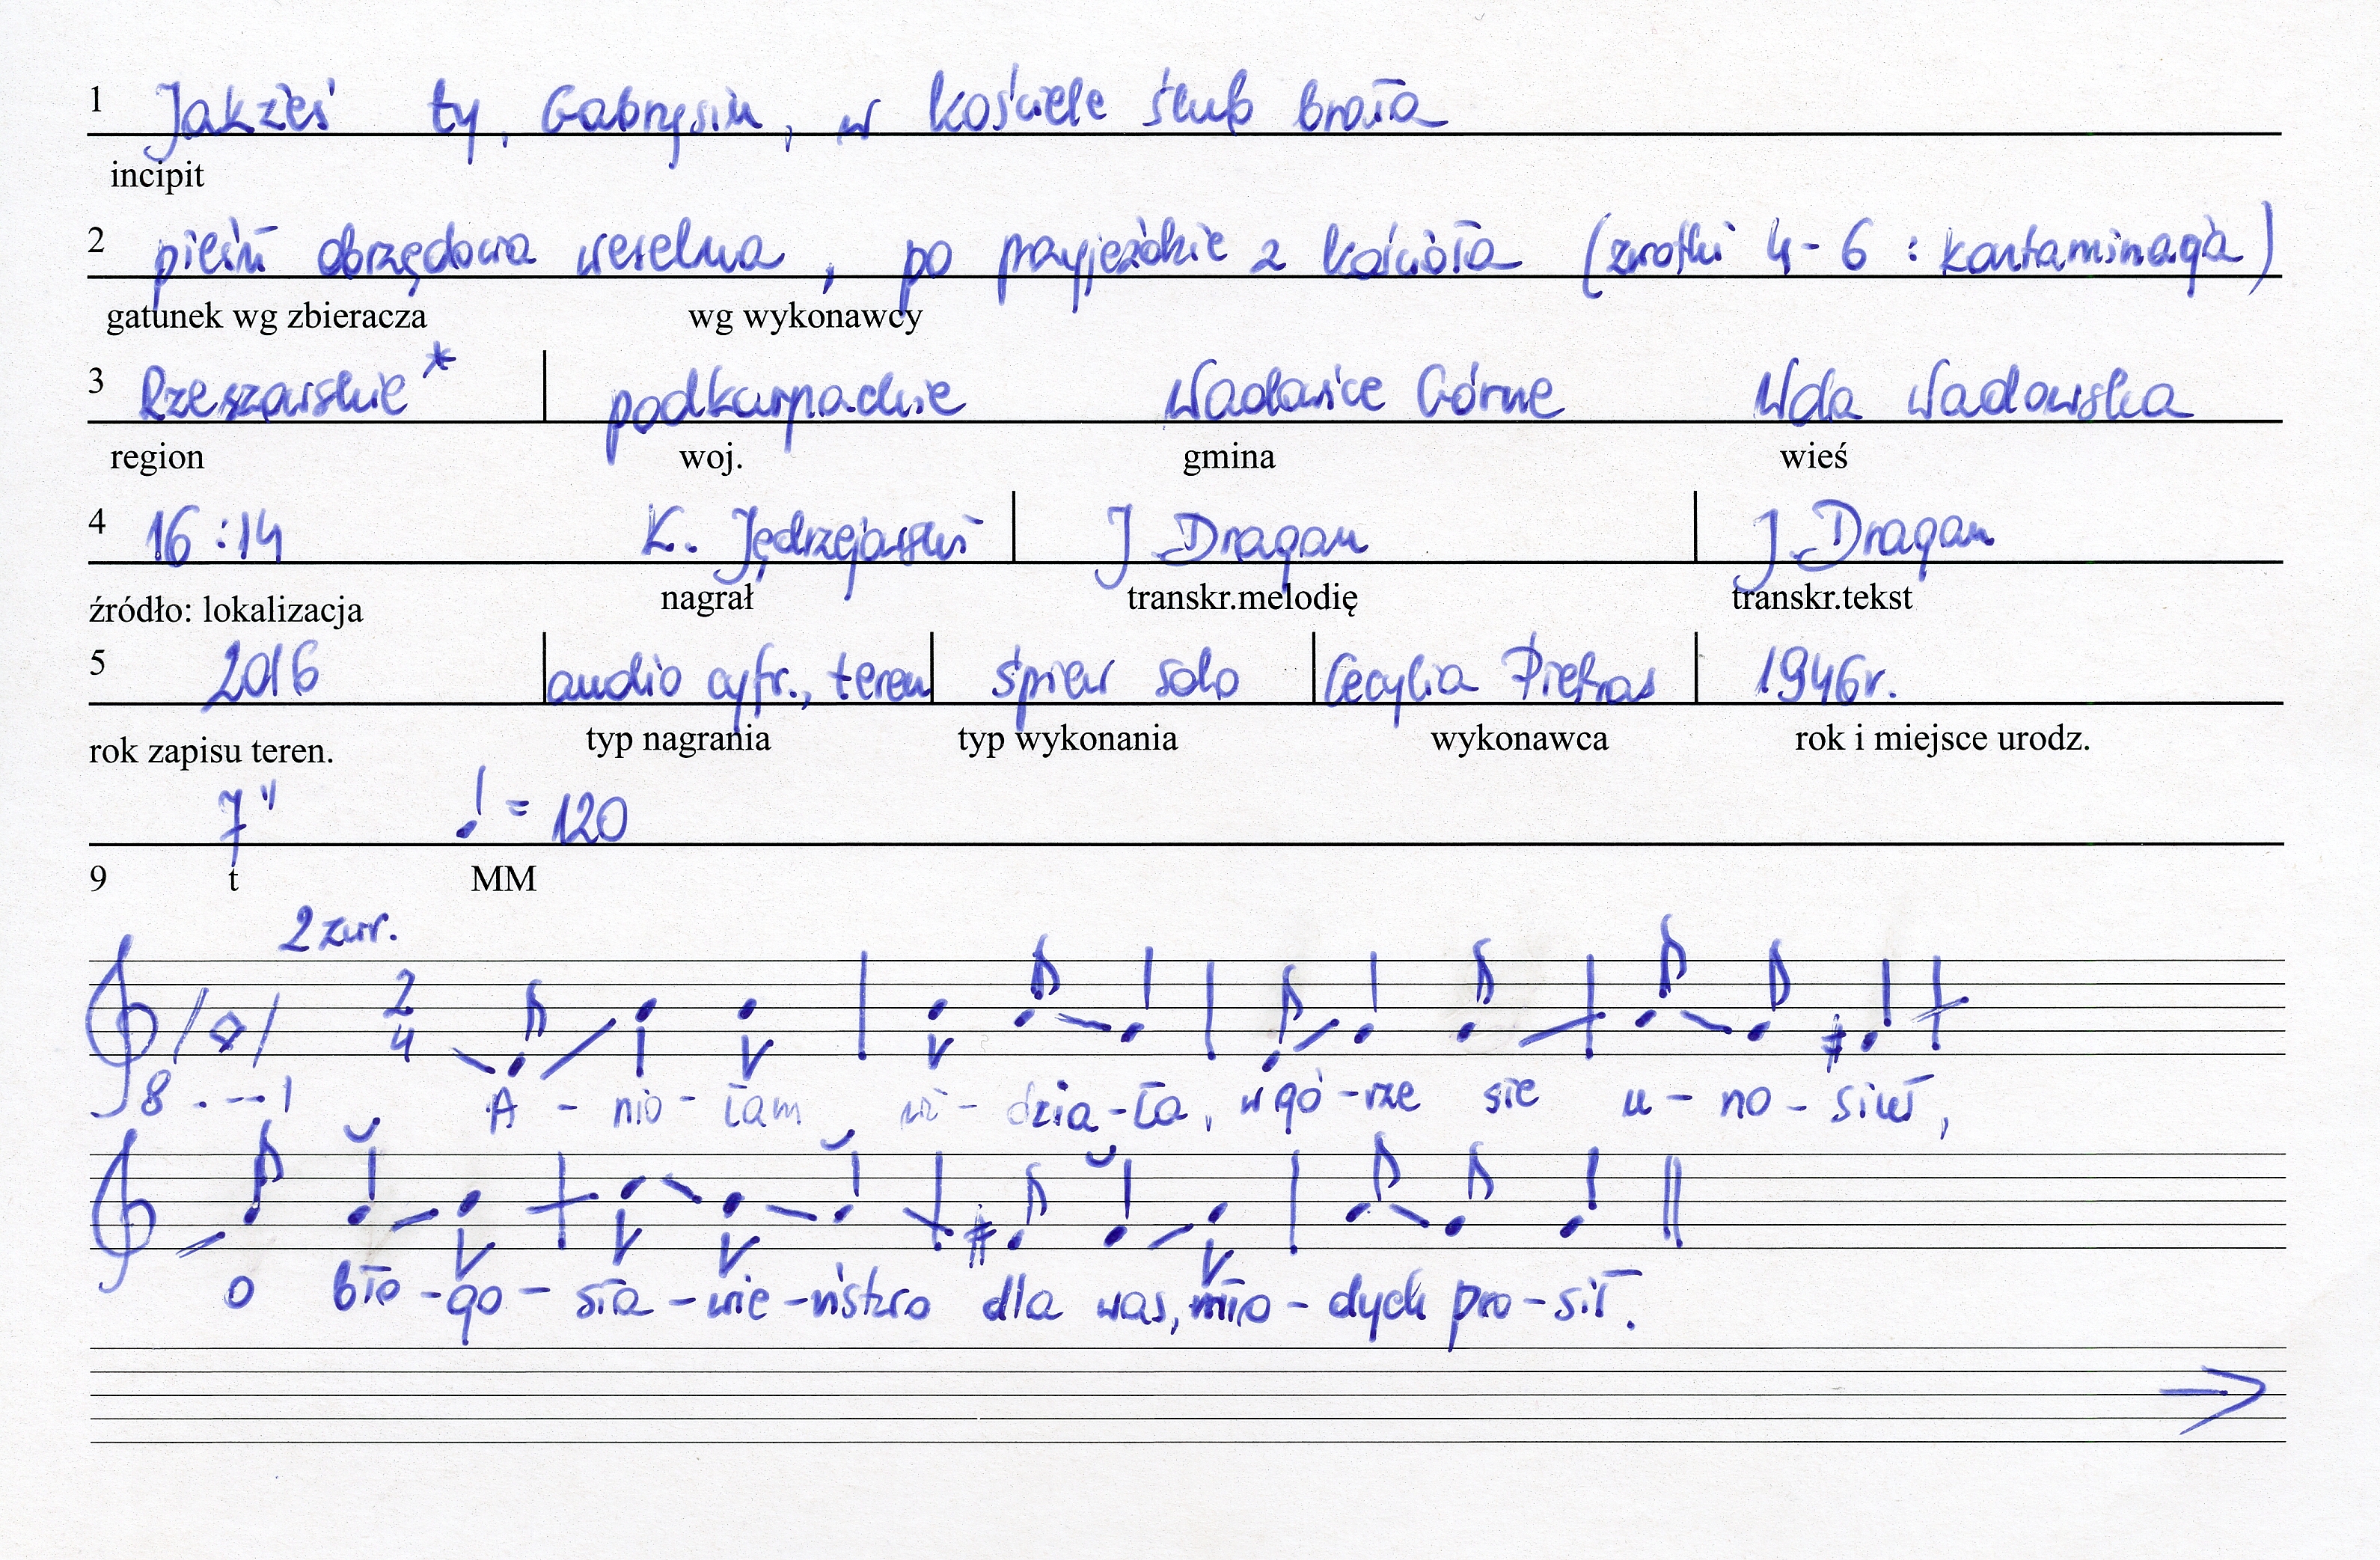 1 Jakżeś ty, Gabrysiu, w kościele ślub brała
incipit
2 pieśń obrzędowa weselna, po przyjeździe z kościoła (zwrotki 4-6 : kontaminacja)
gatunek wg zbieracza wg wykonawcy
3 Rzeszowskie* podkarpackie Wadowice Górne Wola Wadowska
region woj. gmina wieś
4 16:14 K. Jędrzejewski J Dragan J Dragan
źródło: lokalizacja nagrał transkr.melodię transkr.tekst
5 2016 audio cyfr., teren śpiew solo Cecylia Pietras 1946r.
rok zapisu teren. typ nagrania typ wykonania wykonawca rok i miejsce urodz.
7" ♩ = 120
9 t MM
2 zwr.
2
4
8 . - - 1 A - nio - łam wi - dzia - ła, w gó - rze sie u - no - siuł,
o bło - go - sła - wie - ństwo dla was, mło - dych pro - sił.